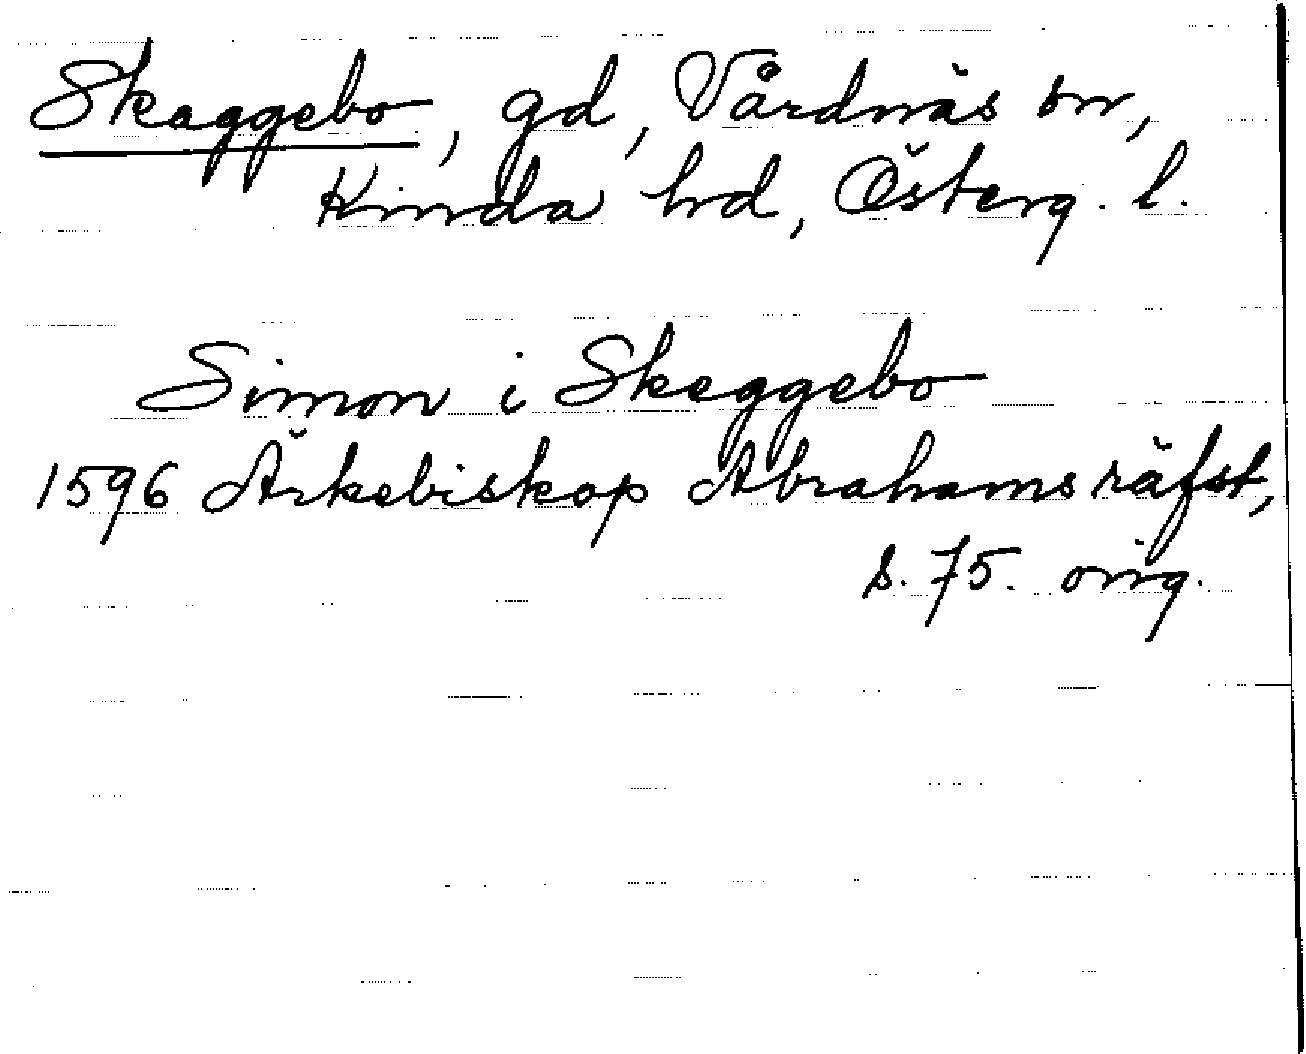 Skaggebo, gd, Vårdnäs sn,
Kinda hd, Österg. l.
Simon i Skeggebo
1596 Ärkebiskop Abrahams räfst,
s. 75. orig.